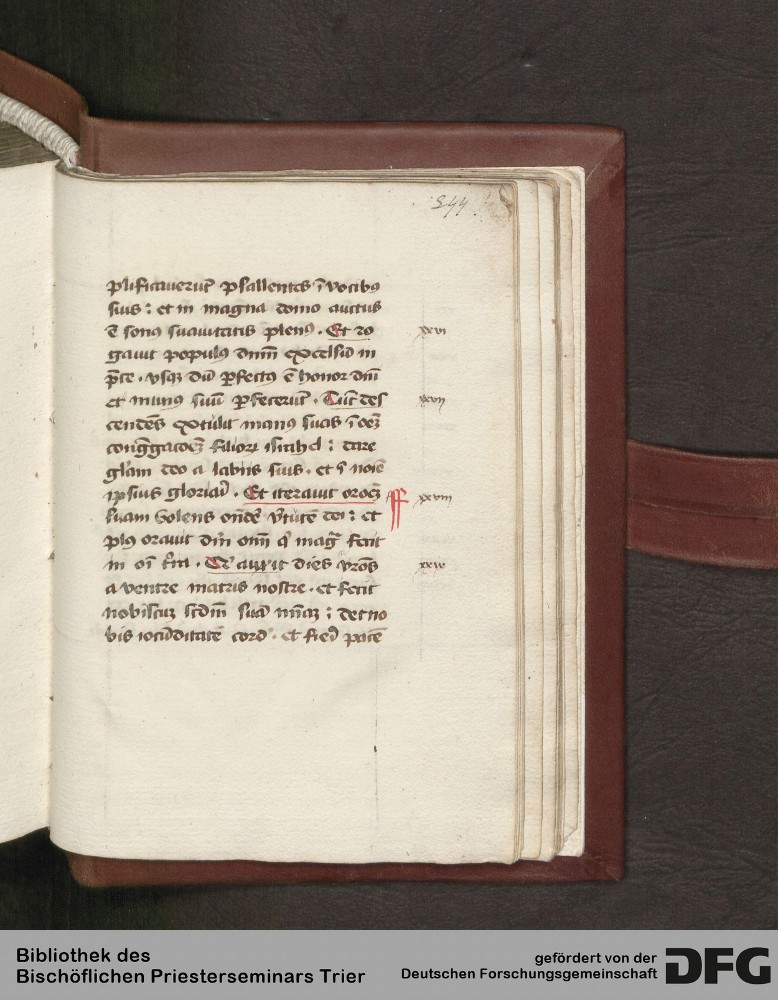 344
plificaueru͂t psallentes ī vocibꝰ
suis : et in magna domo auctus
ē sonꝰ suauitatis plenꝰ . Et ro
xxvi
gauit populꝰ dn͂m excelsū in
p̄ce . vsqꝫ dū ꝑfectꝰ ē honor dn͂i
et munꝰ suū ꝑfecerūt . Tūc des
xxvii
cendēs extulit manꝰ suas ī oēꝫ
congͣgacōeꝫ filioꝝ israhel : dare
glāam deo a labiis suis . et ī noīe
ipsius gloriari . Et iterauit oracōꝫ
xxviii
suam volens ondē v̄tutē dei : et
plꝰ orauit dn͂m om͂i qͥ magͣ fecit
in oī t̄ra . Qͥ auxit dies n͂ros
xxix
a ventre matris nostre . et fecit
nobiscuꝫ scd͂m suā mīaꝫ : det no
bis iocūditatē cord̄ . et fieri pacē
Bibliothek des
Bischöflichen Priesterseminars Trier
gefördert von der
Deutschen Forschungsgemeinschaft
DFG